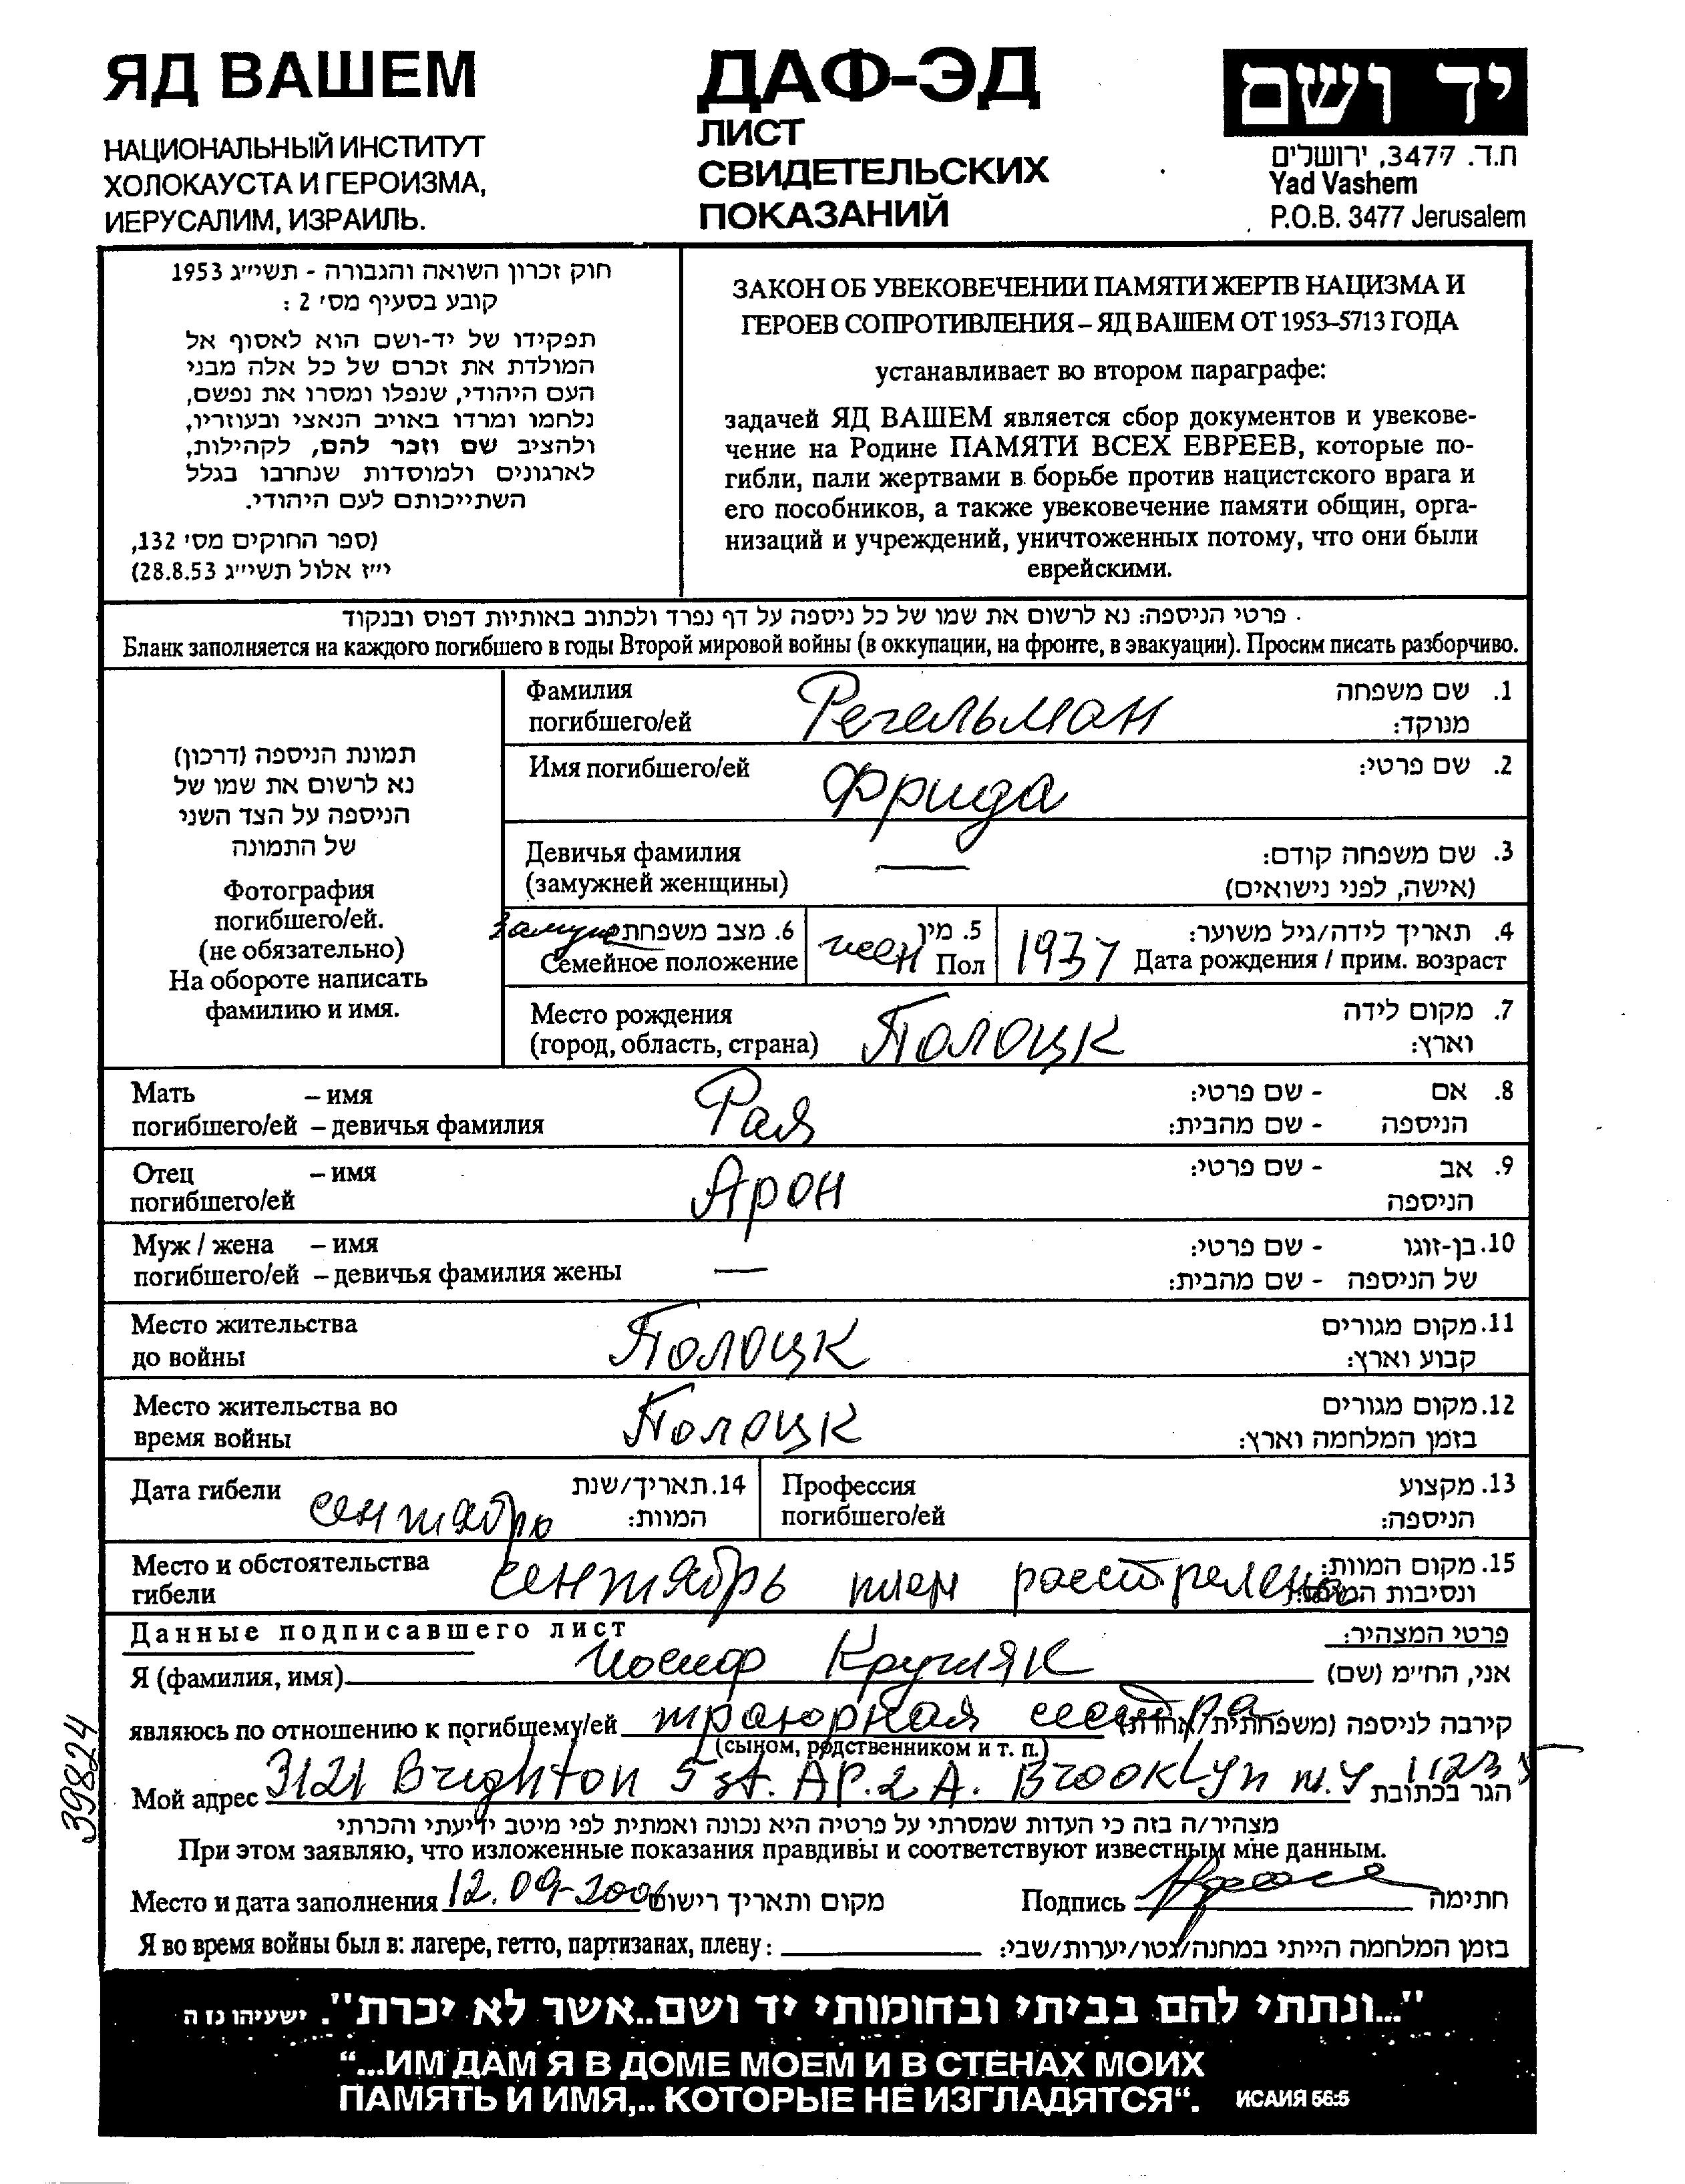 ЯД ВАШЕМ
НАЦИОНАЛЬНЫЙ ИНСТИТУТ
ХОЛОКАУСТА И ГЕРОИЗМА,
ИЕРУСАЛИМ, ИЗРАИЛЬ.
ДАФ-ЭД
ЛИСТ
СВИДЕТЕЛЬСКИХ
ПОКАЗАНИЙ
יד ושם
ת.ד. 3477, ירושלים
Yad Vashem
P.O.B. 3477 Jerusalem
חוק זכרון השואה והגבורה - תשי״ג 1953
קובע בסעיף מס׳ 2 :
תפקידו של יד-ושם הוא לאסוף אל
המולדת את זכרם של כל אלה מבני
העם היהודי, שנפלו ומסרו את נפשם,
נלחמו ומרדו באויב הנאצי ובעוזריו,
ולהציב שם וזכר להם, לקהילות,
לארגונים ולמוסדות שנחרבו בגלל
השתייכותם לעם היהודי.
(ספר החוקים מס׳ 132,
י״ז אלול תשי״ג 28.8.53)
ЗАКОН ОБ УВЕКОВЕЧЕНИИ ПАМЯТИ ЖЕРТВ НАЦИЗМА И
ГЕРОЕВ СОПРОТИВЛЕНИЯ – ЯД ВАШЕМ ОТ 1953–5713 ГОДА
устанавливает во втором параграфе:
задачей ЯД ВАШЕМ является сбор документов и увекове-
чение на Родине ПАМЯТИ ВСЕХ ЕВРЕЕВ, которые по-
гибли, пали жертвами в борьбе против нацистского врага и
его пособников, а также увековечение памяти общин, орга-
низаций и учреждений, уничтоженных потому, что они были
еврейскими.
פרטי הניספה: נא לרשום את שמו של כל ניספה על דף נפרד ולכתוב באותיות דפוס ובנקוד
Бланк заполняется на каждого погибшего в годы Второй мировой войны (в оккупации, на фронте, в эвакуации). Просим писать разборчиво.
תמונת הניספה (דרכון)
נא לרשום את שמו של
הניספה על הצד השני
של התמונה
Фотография
погибшего/ей.
(не обязательно)
На обороте написать
фамилию и имя.
Фамилия Регельман 1. שם משפחה
погибшего/ей מנוקד:
Имя погибшего/ей Фрида 2. שם פרטי:
Девичья фамилия — 3. שם משפחה קודם:
(замужней женщины) (אישה, לפני נישואים)
6. מצב משפחתי 5. מין 4. תאריך לידה/גיל משוער:
Семейное положение жен Пол 1937 Дата рождения / прим. возраст
Место рождения Полоцк 7. מקום לידה
(город, область, страна) וארץ:
Мать – имя Рая 8. אם - שם פרטי:
погибшего/ей – девичья фамилия הניספה - שם מהבית:
Отец – имя Арон 9. אב - שם פרטי:
погибшего/ей הניספה
Муж / жена – имя — 10. בן-זוגו - שם פרטי:
погибшего/ей – девичья фамилия жены של הניספה - שם מהבית:
Место жительства Полоцк 11. מקום מגורים
до войны קבוע וארץ:
Место жительства во Полоцк 12. מקום מגורים
время войны בזמן המלחמה וארץ:
Дата гибели сентябрь 14. תאריך/שנת Профессия 13. מקצוע
המוות: погибшего/ей הניספה:
Место и обстоятельства сентябрь расстрелена 15. מקום המוות:
гибели ונסיבות המוות:
Данные подписавшего лист פרטי המצהיר:
Я (фамилия, имя) Иосиф Кругляк אני, החי״מ (שם)
являюсь по отношению к погибшему/ей сестра קירבה לניספה (משפחתית/אחרת)
(сыном, родственником и т. п.)
Мой адрес 3121 Brighton 5 st. AP. 2 A. Brooklyn N.Y 11235 הגר בכתובת
מצהיר/ה בזה כי העדות שמסרתי על פרטיה היא נכונה ואמתית לפי מיטב ידיעתי והכרתי
При этом заявляю, что изложенные показания правдивы и соответствуют известным мне данным.
Место и дата заполнения 12.09-2006 מקום ותאריך רישום Подпись חתימה
Я во время войны был в: лагере, гетто, партизанах, плену: בזמן המלחמה הייתי במחנה/גטו/יערות/שבי:
39824
"...ונתתי להם בביתי ובחומותי יד ושם..אשר לא יכרת". ישעיהו נז ה
“...ИМ ДАМ Я В ДОМЕ МОЕМ И В СТЕНАХ МОИХ
ПАМЯТЬ И ИМЯ,.. КОТОРЫЕ НЕ ИЗГЛАДЯТСЯ“. ИСАИЯ 56:5